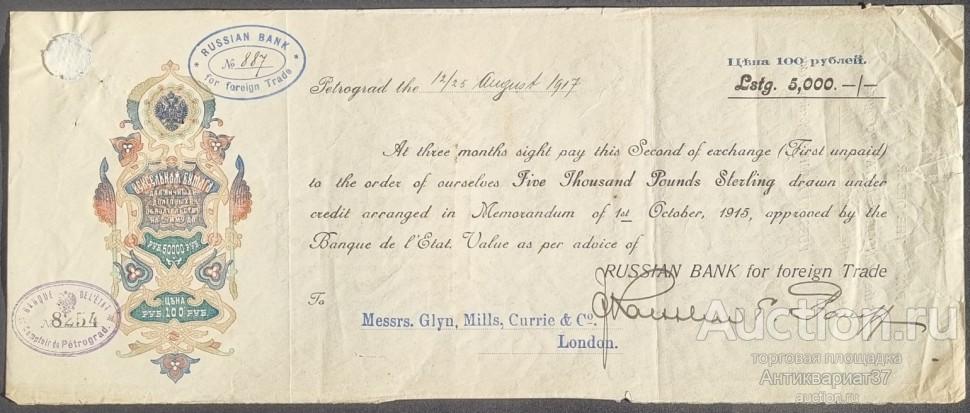 RUSSIAN BANK
№ 887
for foreign Trade
Цѣна 100 рублей.
Petrograd the 12/25 August 1917
Lstg. 5,000.—/—
At three months sight pay this Second of exchange (First unpaid)
to the order of ourselves Five Thousand Pounds Sterling drawn under
credit arranged in Memorandum of 1st October, 1915, approved by the
Banque de l'Etat. Value as per advice of
RUSSIAN BANK for foreign Trade
To
Messrs. Glyn, Mills, Currie & Co.
London.
ВЕКСЕЛЬНАЯ БУМАГА
РУБ. 50000 РУБ.
ЦѢНА
РУБ. 100 РУБ.
BANQUE DE L'ETAT
№ 8254
Comptoir de Pétrograd.
Auction.ru
торговая площадка
Антиквариат37
auction.ru